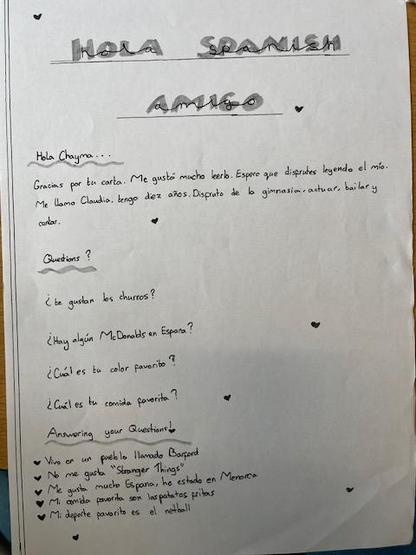 HOLA SPANISH
hola spanish
AMIGO
amigo
Hola Chayma...
Gracias por tu carta. Me gustó mucho leerla. Espero que disfrutes leyendo el mío.
Me llamo Claudia, tengo diez años. Disfruto de la gimnasia, actuar, bailar y
cantar.
Questions?
¿te gustan los churros?
¿Hay algún McDonalds en Espana?
¿Cuál es tu color favorito?
¿Cuál es tu comida favorita?
Answering your Questions!
Vivo en un pueblo llamado Barford
No me gusta "Stranger Things"
Me gusta mucho Espana, he estado en Menorca
Mi comida favorita son las patatas fritas
Mi deporte favorito es el netball